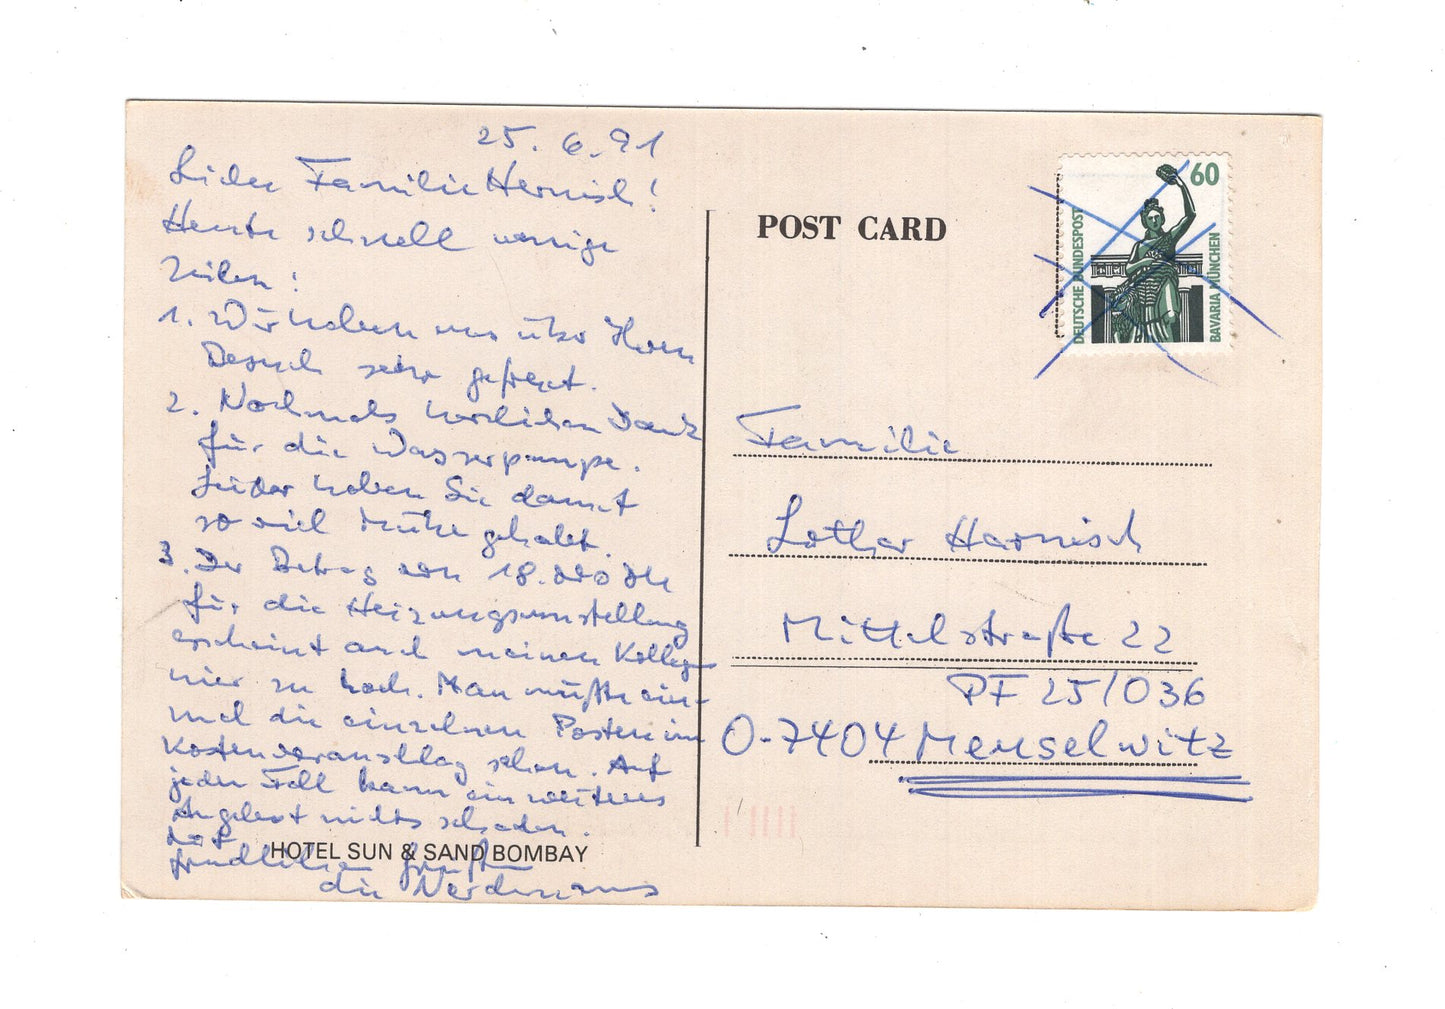 25.6.91
Liebe Familie Harnisch!
Heute schnell wenige
Zeilen:
1. Wir haben uns über Ihren
Besuch sehr gefreut.
2. Nochmals herzlichen Dank
für die Wasserpumpe.
Leider haben Sie damit
so viel Mühe gehabt.
3. Der Betrag von 18.000 DM
für die Heizungsumstellung
erscheint auch meinen Kollegen
hier zu hoch. Man müßte ein-
mal die einzelnen Posten im
Kostenvoranschlag sehen. Auf
jeden Fall kann ein weiteres
Angebot nichts schaden.
Mit
freundlichen Grüßen
die
HOTEL SUN & SAND BOMBAY
POST CARD
60
DEUTSCHE BUNDESPOST
BAVARIA MÜNCHEN
Familie
Lothar Harnisch
Mittelstraße 22
PF 25/036
O-7404 Meuselwitz